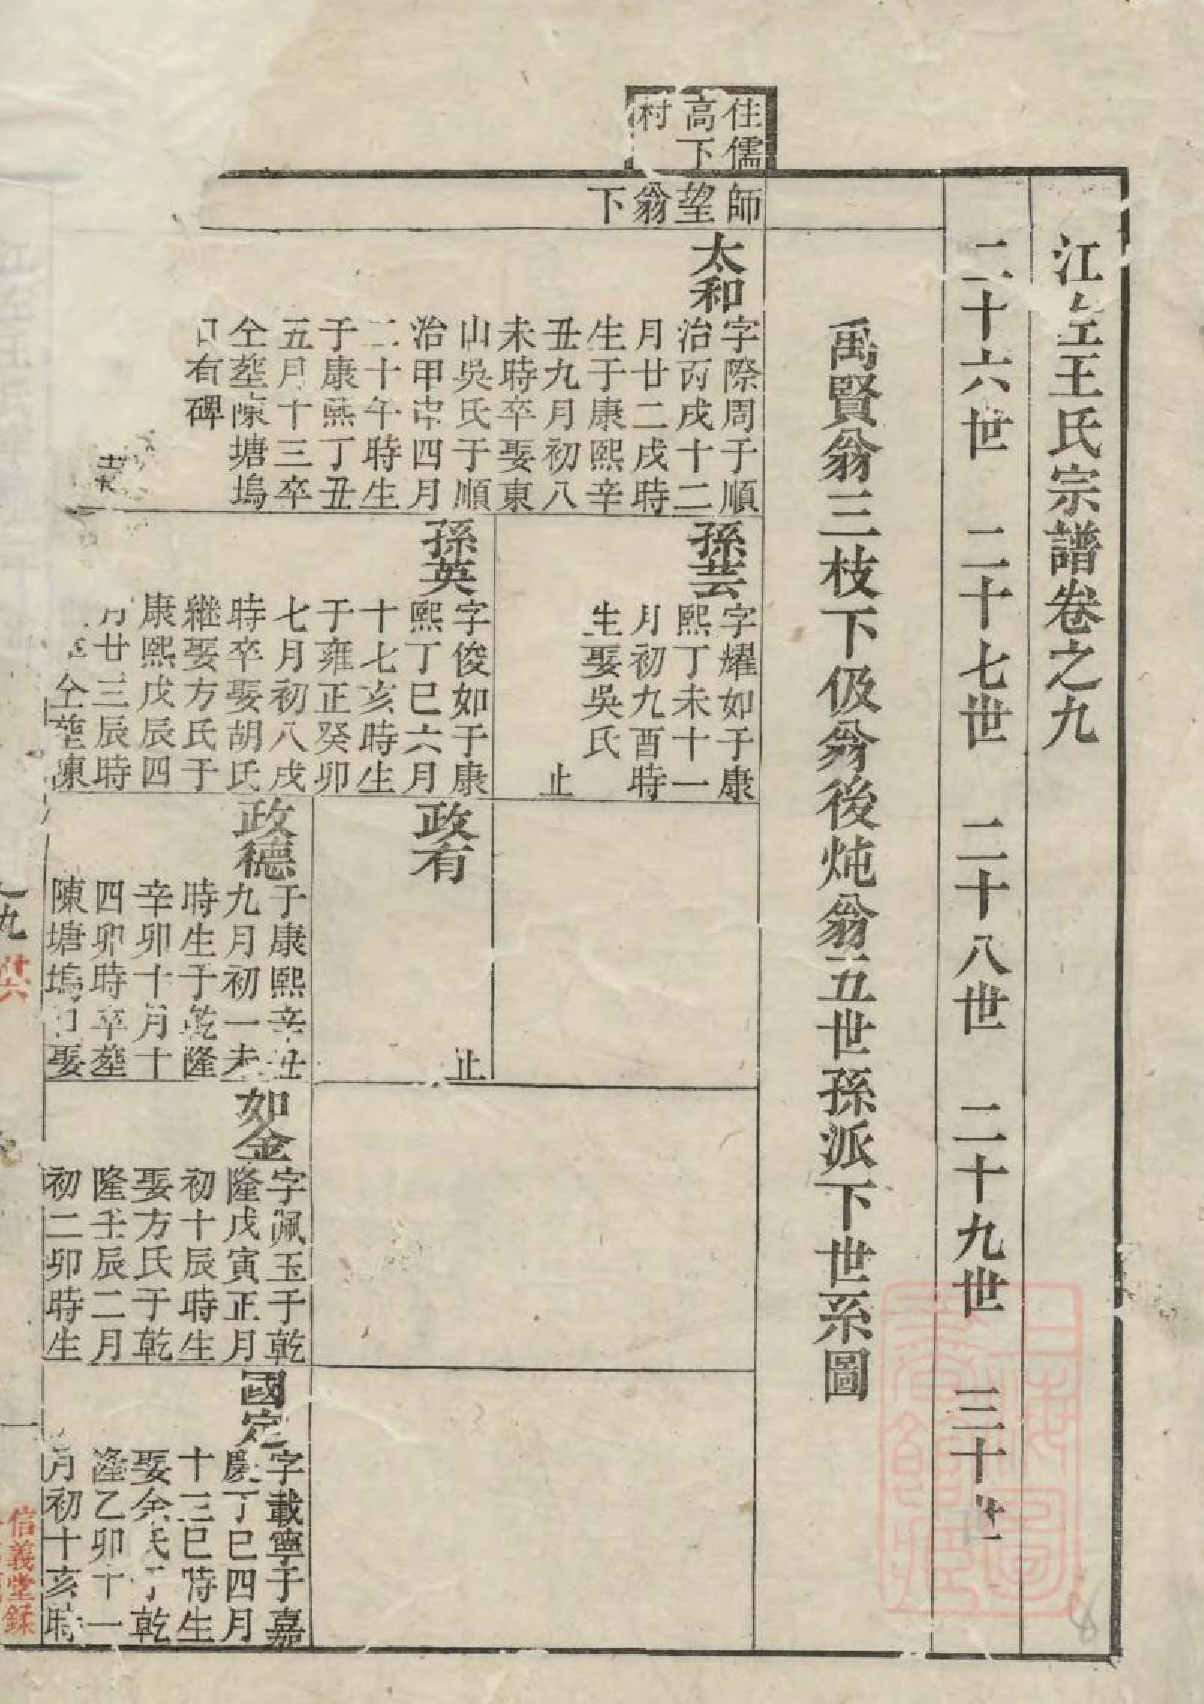 江左王氏宗譜卷之九
二十六世 二十七世 二十八世 二十九世 三十世
禹賢翁三枝下伋翁後炖翁五世孫派下世系圖
住儒
高下
村
師望翁下
太和
字際周于順
治丙戌十二
月廿二戌時
生于康熙辛
丑九月初八
未時卒娶東
山吳氏于順
治甲申四月
二十午時生
于康熙丁丑
五月十三卒
仝塟陳塘塢
有碑
孫芸
字耀如于康
熙丁未十一
月初九酉時
生娶吳氏
止
孫英
字俊如于康
熙丁巳六月
十七亥時生
于雍正癸卯
七月初八戌
時卒娶胡氏
継娶方氏于
康熙戊辰四
月廿三辰時
仝塟陳
政有
止
政德
于康熙辛丑
九月初一未
時生于乾隆
辛卯十月十
四卯時卒塟
陳塘塢口娶
如金
字珮玉于乾
隆戊寅正月
初十辰時生
娶方氏于乾
隆壬辰二月
初二卯時生
國定
字載寧于嘉
慶丁巳四月
十三巳時生
娶余氏于乾
隆乙卯十一
月初十亥時
九
廿六
一
信義堂鍒
8